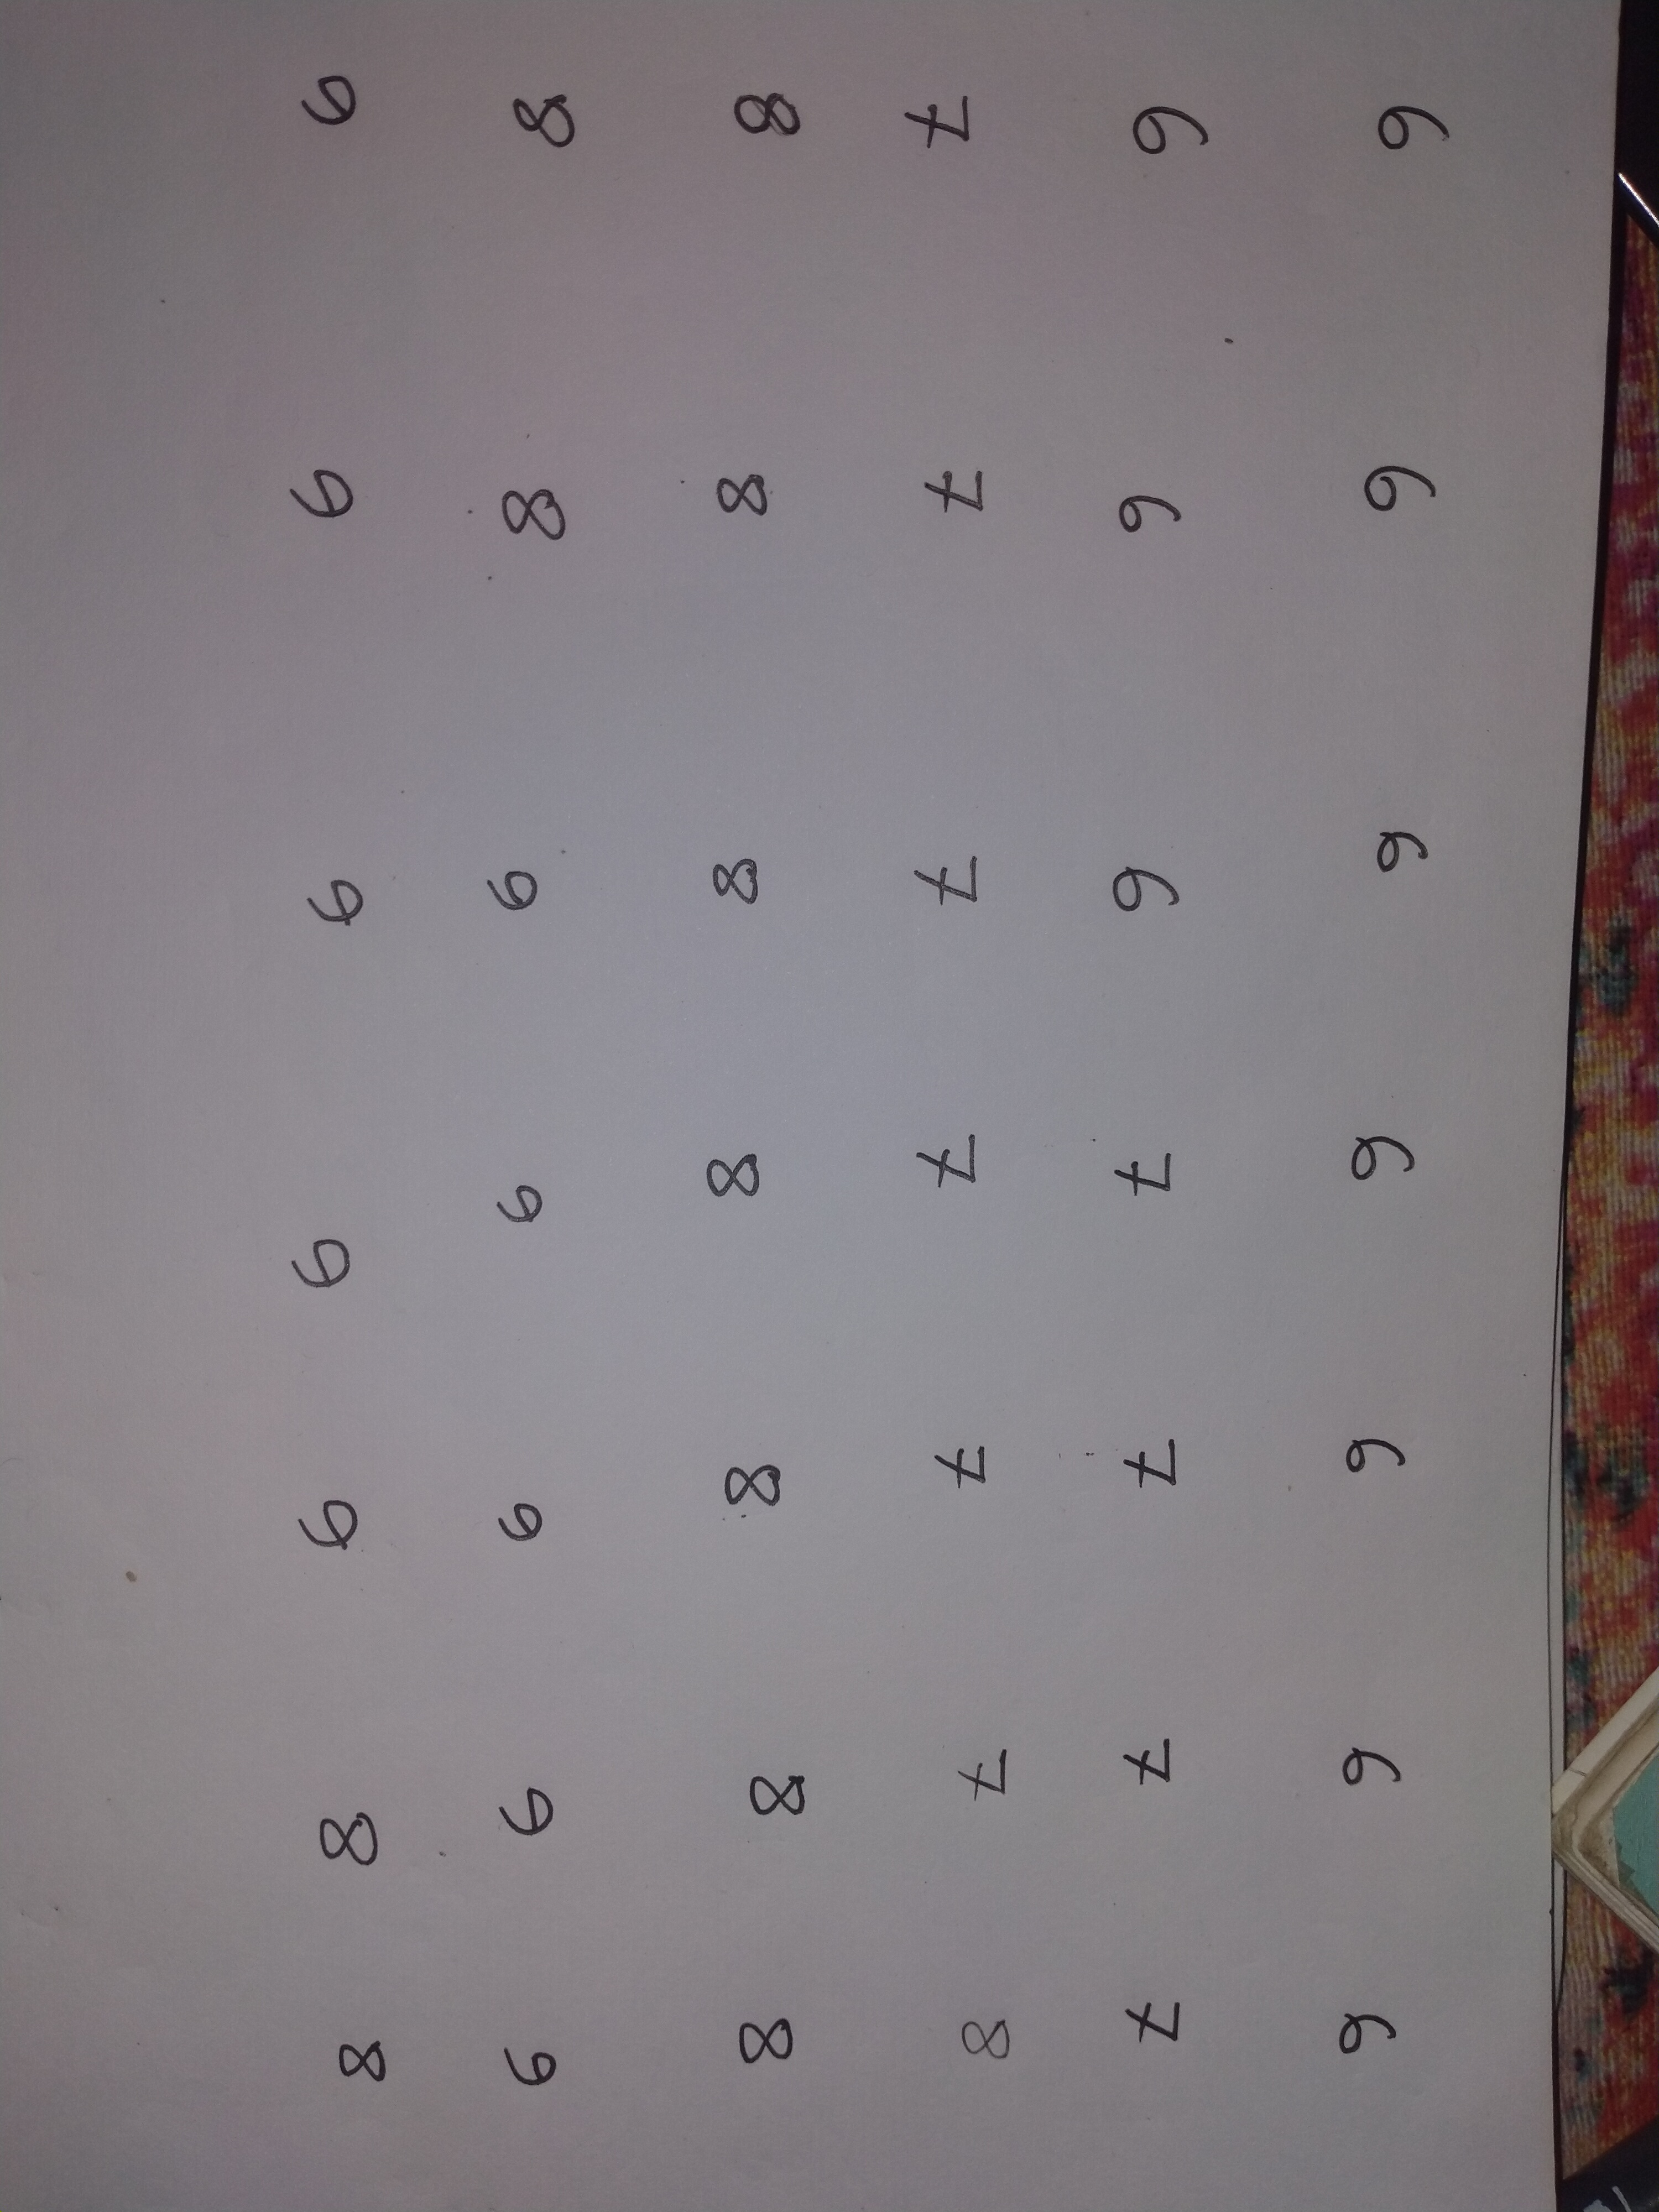 6 6 6 6 6 6 6
6 6 6 7 7 7 7
7 7 7 7 7 7 8
8 8 8 8 8 8 8
8 8 9 9 9 9 9
9 9 9 9 9 8 8